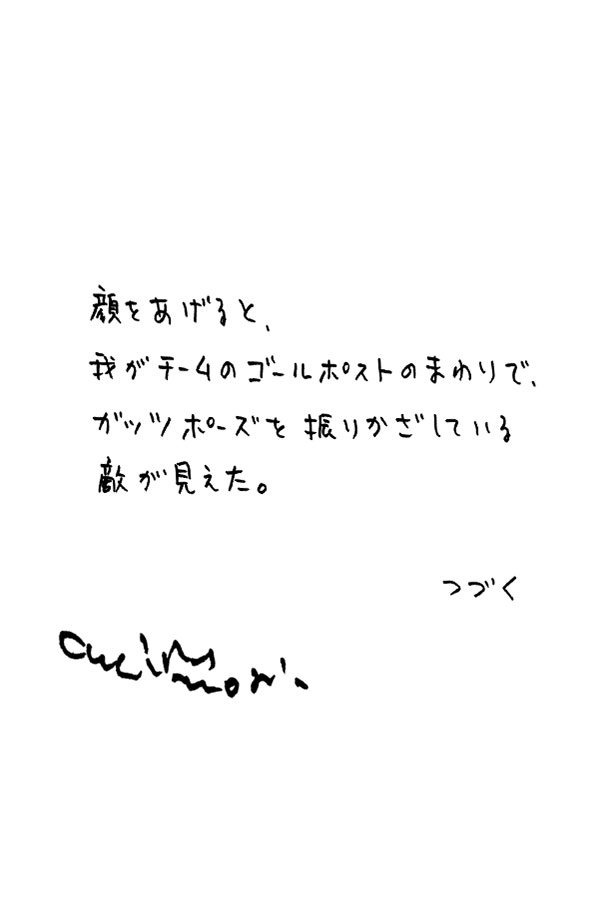 顔をあげると、
我がチームのゴールポストのまわりで、
ガッツポーズを振りかざしている
敵が見えた。
つづく